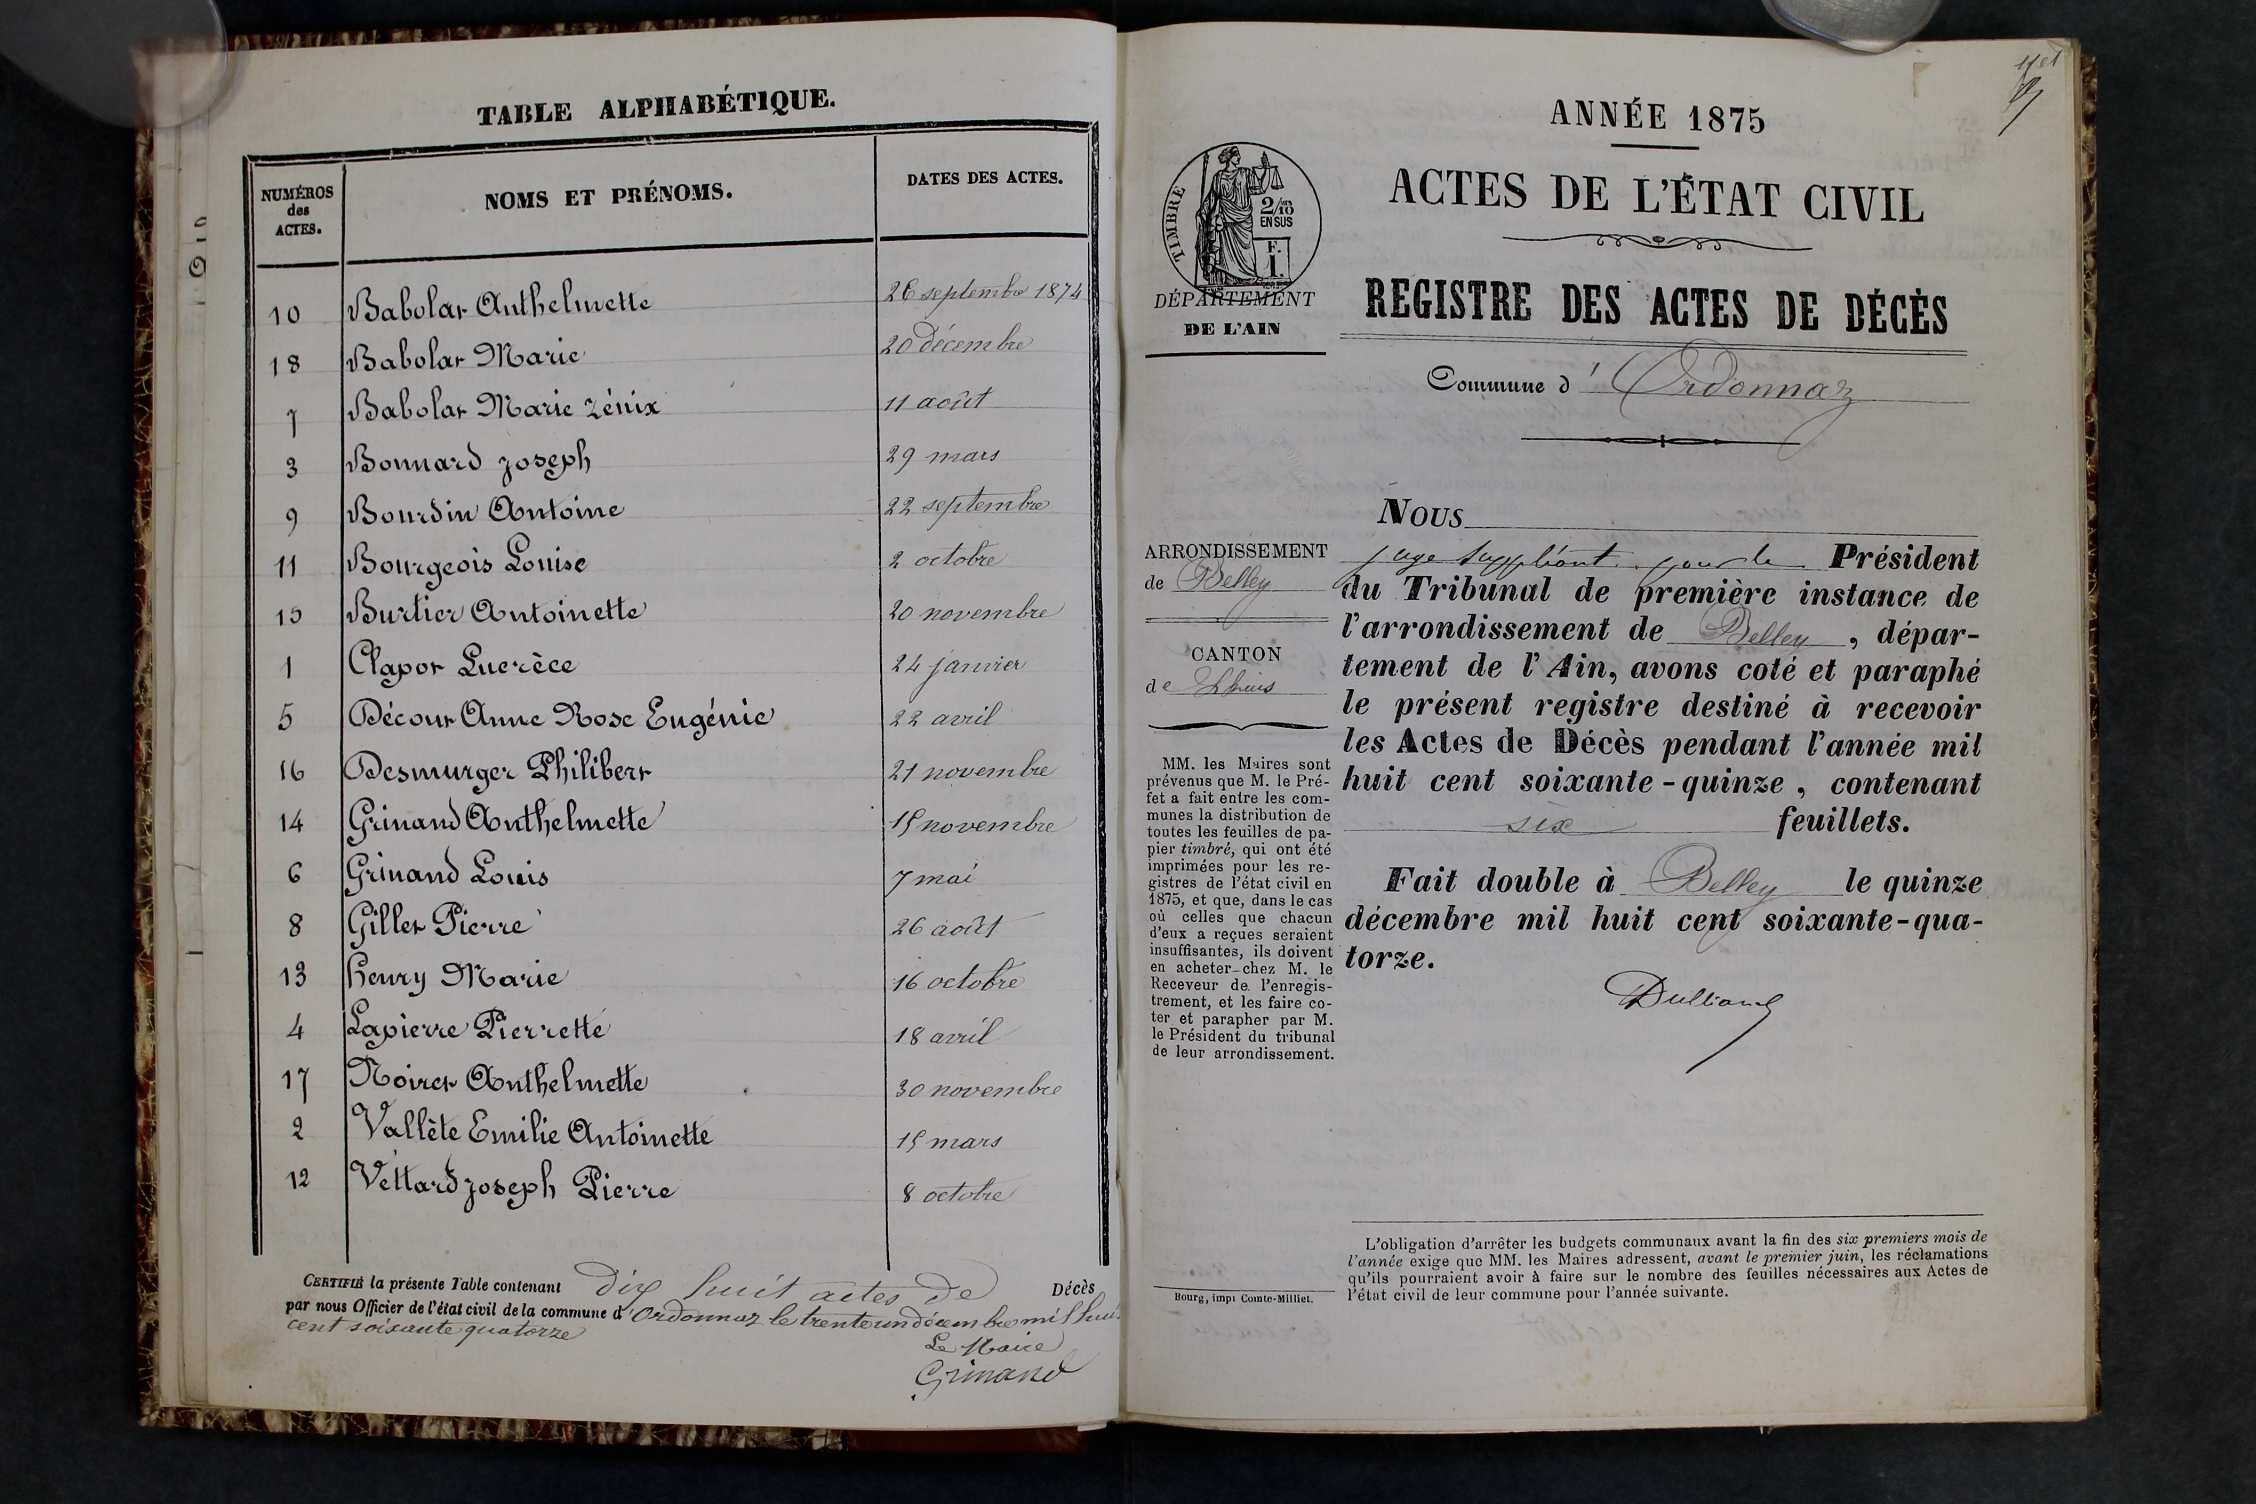 TABLE ALPHABÉTIQUE.
NUMÉROS des ACTES. NOMS ET PRÉNOMS. DATES DES ACTES.
10 Babolat Anthelmette 26 septembre 1874
18 Babolat Marie 20 décembre
7 Babolat Marie Zénix 11 août
3 Bonnard Joseph 29 mars
9 Bourdin Antoine 22 septembre
11 Bourgeois Louise 2 octobre
15 Burtier Antoinette 20 novembre
1 Clapot Lucrèce 24 janvier
5 Décour Anne Rose Eugénie 22 avril
16 Desmurger Philibert 21 novembre
14 Grinand Anthelmette 15 novembre
6 Grinand Louis 7 mai
8 Gillet Pierre 26 août
13 henry Marie 16 octobre
4 Lapierre Pierrette 18 avril
17 Noiret Anthelmette 30 novembre
2 Vallète Emilie Antoinette 15 mars
12 Vettard Joseph Pierre 8 octobre
CERTIFIÉ la présente Table contenant dix huit actes de Décès
par nous Officier de l'état civil de la commune d'Ordonnaz le trente un décembre mil huit
cent soixante quatorze
Le Maire
Grinand
ANNÉE 1875
ACTES DE L'ÉTAT CIVIL
REGISTRE DES ACTES DE DÉCÈS
Commune d'Ordonnaz
TIMBRE
2/10 EN SUS
F. 1.
DÉPARTEMENT
DE L'AIN
ARRONDISSEMENT
de Belley
CANTON
de Lhuis
MM. les Maires sont
prévenus que M. le Pré-
fet a fait entre les com-
munes la distribution de
toutes les feuilles de pa-
pier timbré, qui ont été
imprimées pour les re-
gistres de l'état civil en
1875, et que, dans le cas
où celles que chacun
d'eux a reçues seraient
insuffisantes, ils doivent
en acheter chez M. le
Receveur de l'enregis-
trement, et les faire co-
ter et parapher par M.
le Président du tribunal
de leur arrondissement.
Bourg, impr Comte-Milliet.
NOUS
juge suppléant pour le Président
du Tribunal de première instance de
l'arrondissement de Belley, dépar-
tement de l'Ain, avons coté et paraphé
le présent registre destiné à recevoir
les Actes de Décès pendant l'année mil
huit cent soixante-quinze, contenant
six feuillets.
Fait double à Belley le quinze
décembre mil huit cent soixante-qua-
torze.
Dulliand
L'obligation d'arrêter les budgets communaux avant la fin des six premiers mois de
l'année exige que MM. les Maires adressent, avant le premier juin, les réclamations
qu'ils pourraient avoir à faire sur le nombre des feuilles nécessaires aux Actes de
l'état civil de leur commune pour l'année suivante.